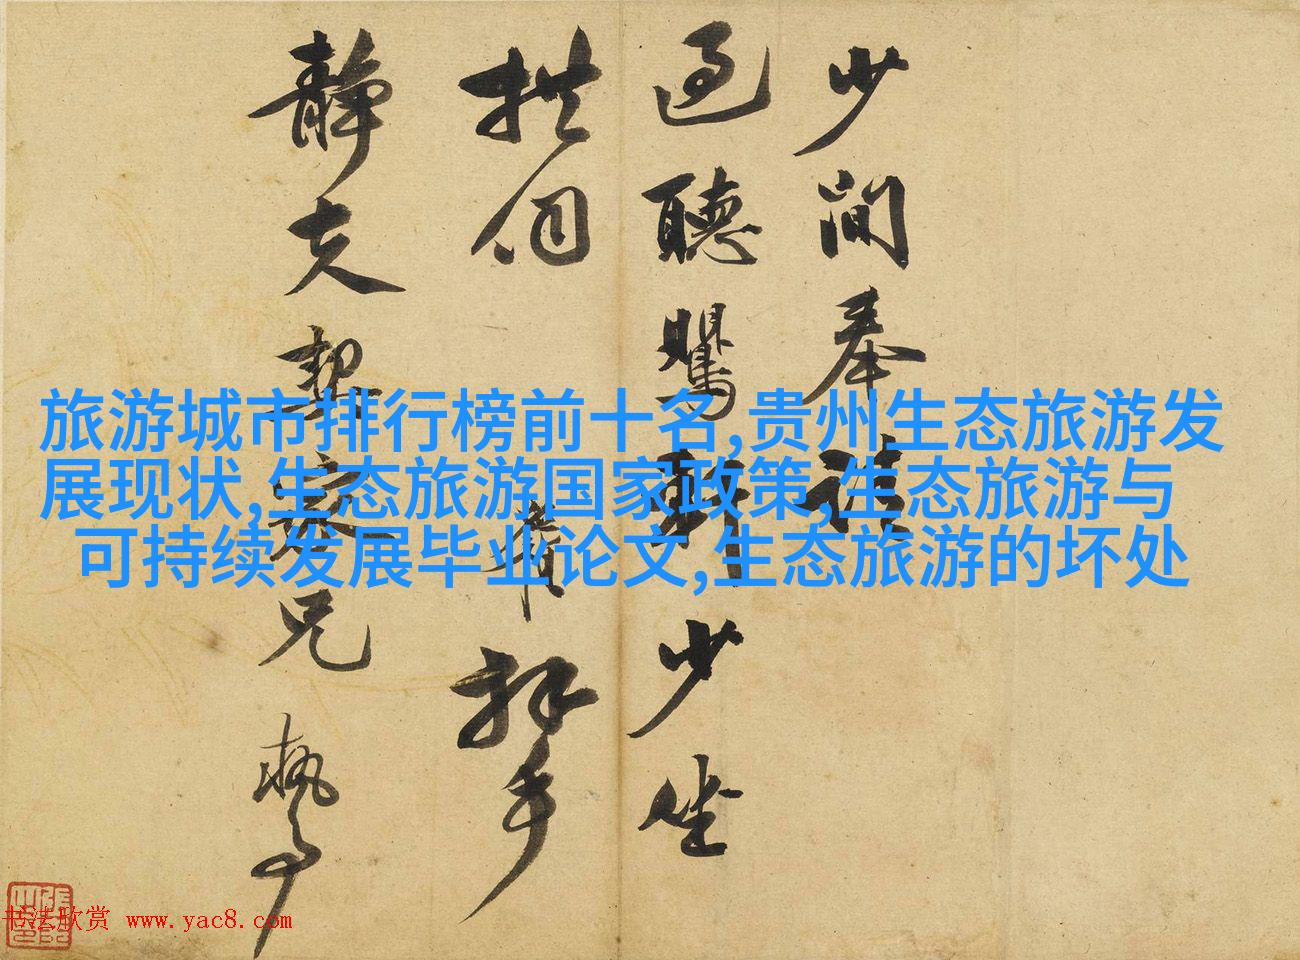 少間奉
過聽鸎軒少坐
拱伺 拜手
靜夫契家兄 執事
旅游城市排行榜前十名,贵州生态旅游发
展现状,生态旅游国家政策,生态旅游与
可持续发展毕业论文,生态旅游的坏处
书法欣赏 www.yac8.com